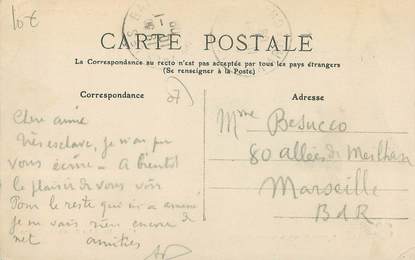 10€
CARTE POSTALE
La Correspondance au recto n'est pas acceptée par tous les pays étrangers
(Se renseigner à la Poste)
Correspondance
Adresse
Chère amie
Très esclave, je n'ai pu
vous écrire – A bientôt
le plaisir de vous voir
Pour le reste qui m'a amené
je ne vais rien encore de
net amitiés
Mme Besucco
80 allées de Meilhan
Marseille
B d R